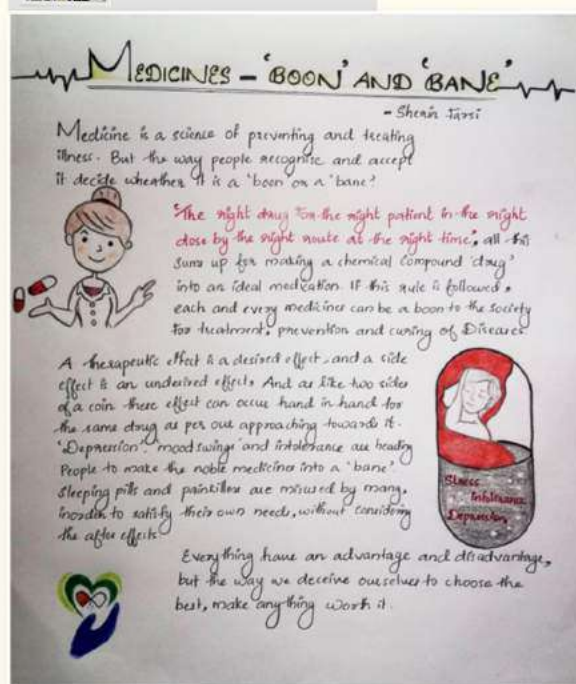 MEDICINES - 'BOON' AND 'BANE'
- Sherin Farsi
Medicine is a science of preventing and treating
illness. But the way people recognise and accept
it decide wheather it is a 'boon' or a 'bane'!
"The right drug for the right patient in the right
dose by the right route at the right time", all this
sums up for making a chemical compound 'drug'
into an ideal medication. If this rule is followed,
each and every medicines can be a boon to the society
for treatment, prevention and curing of Diseases.
A therapeutic effect is a desired effect, and a side
effect is an undesired effects. And as like two sides
of a coin these effect can occur hand in hand for
the same drug as per our approaching towards it.
'Depression', 'mood swings' and intolerance are heading
People to make the noble medicines into a 'bane'
Sleeping pills and painkillers are misused by many,
inorder to satisfy their own needs, without considering
the after effects.
Stress
Intolerance
Depression
Everything have an advantage and disadvantage,
but the way we deceive ourselves to choose the
best, make anything worth it.